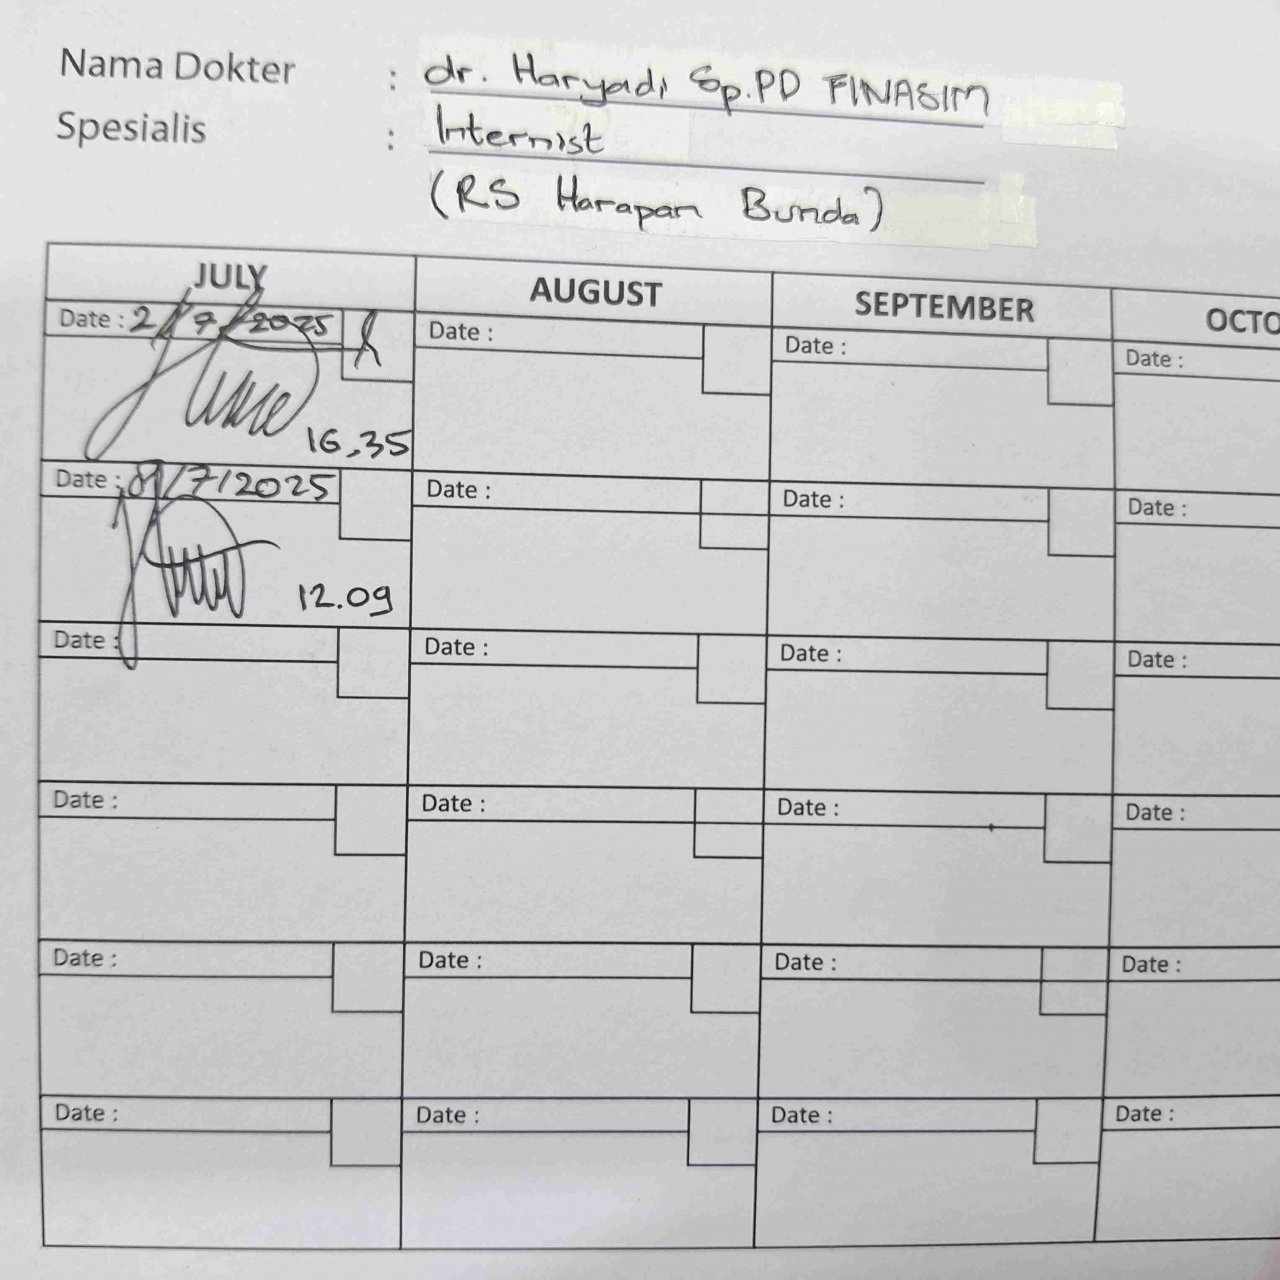 Nama Dokter : dr. Haryadi Sp.PD FINASIM
Spesialis : Internist
(RS Harapan Bunda)
JULY AUGUST SEPTEMBER OCTO
Date : 2/7/2025 Date : Date : Date :
16.35
Date : 8/7/2025 Date : Date : Date :
12.09
Date : Date : Date : Date :
Date : Date : Date : Date :
Date : Date : Date : Date :
Date : Date : Date : Date :